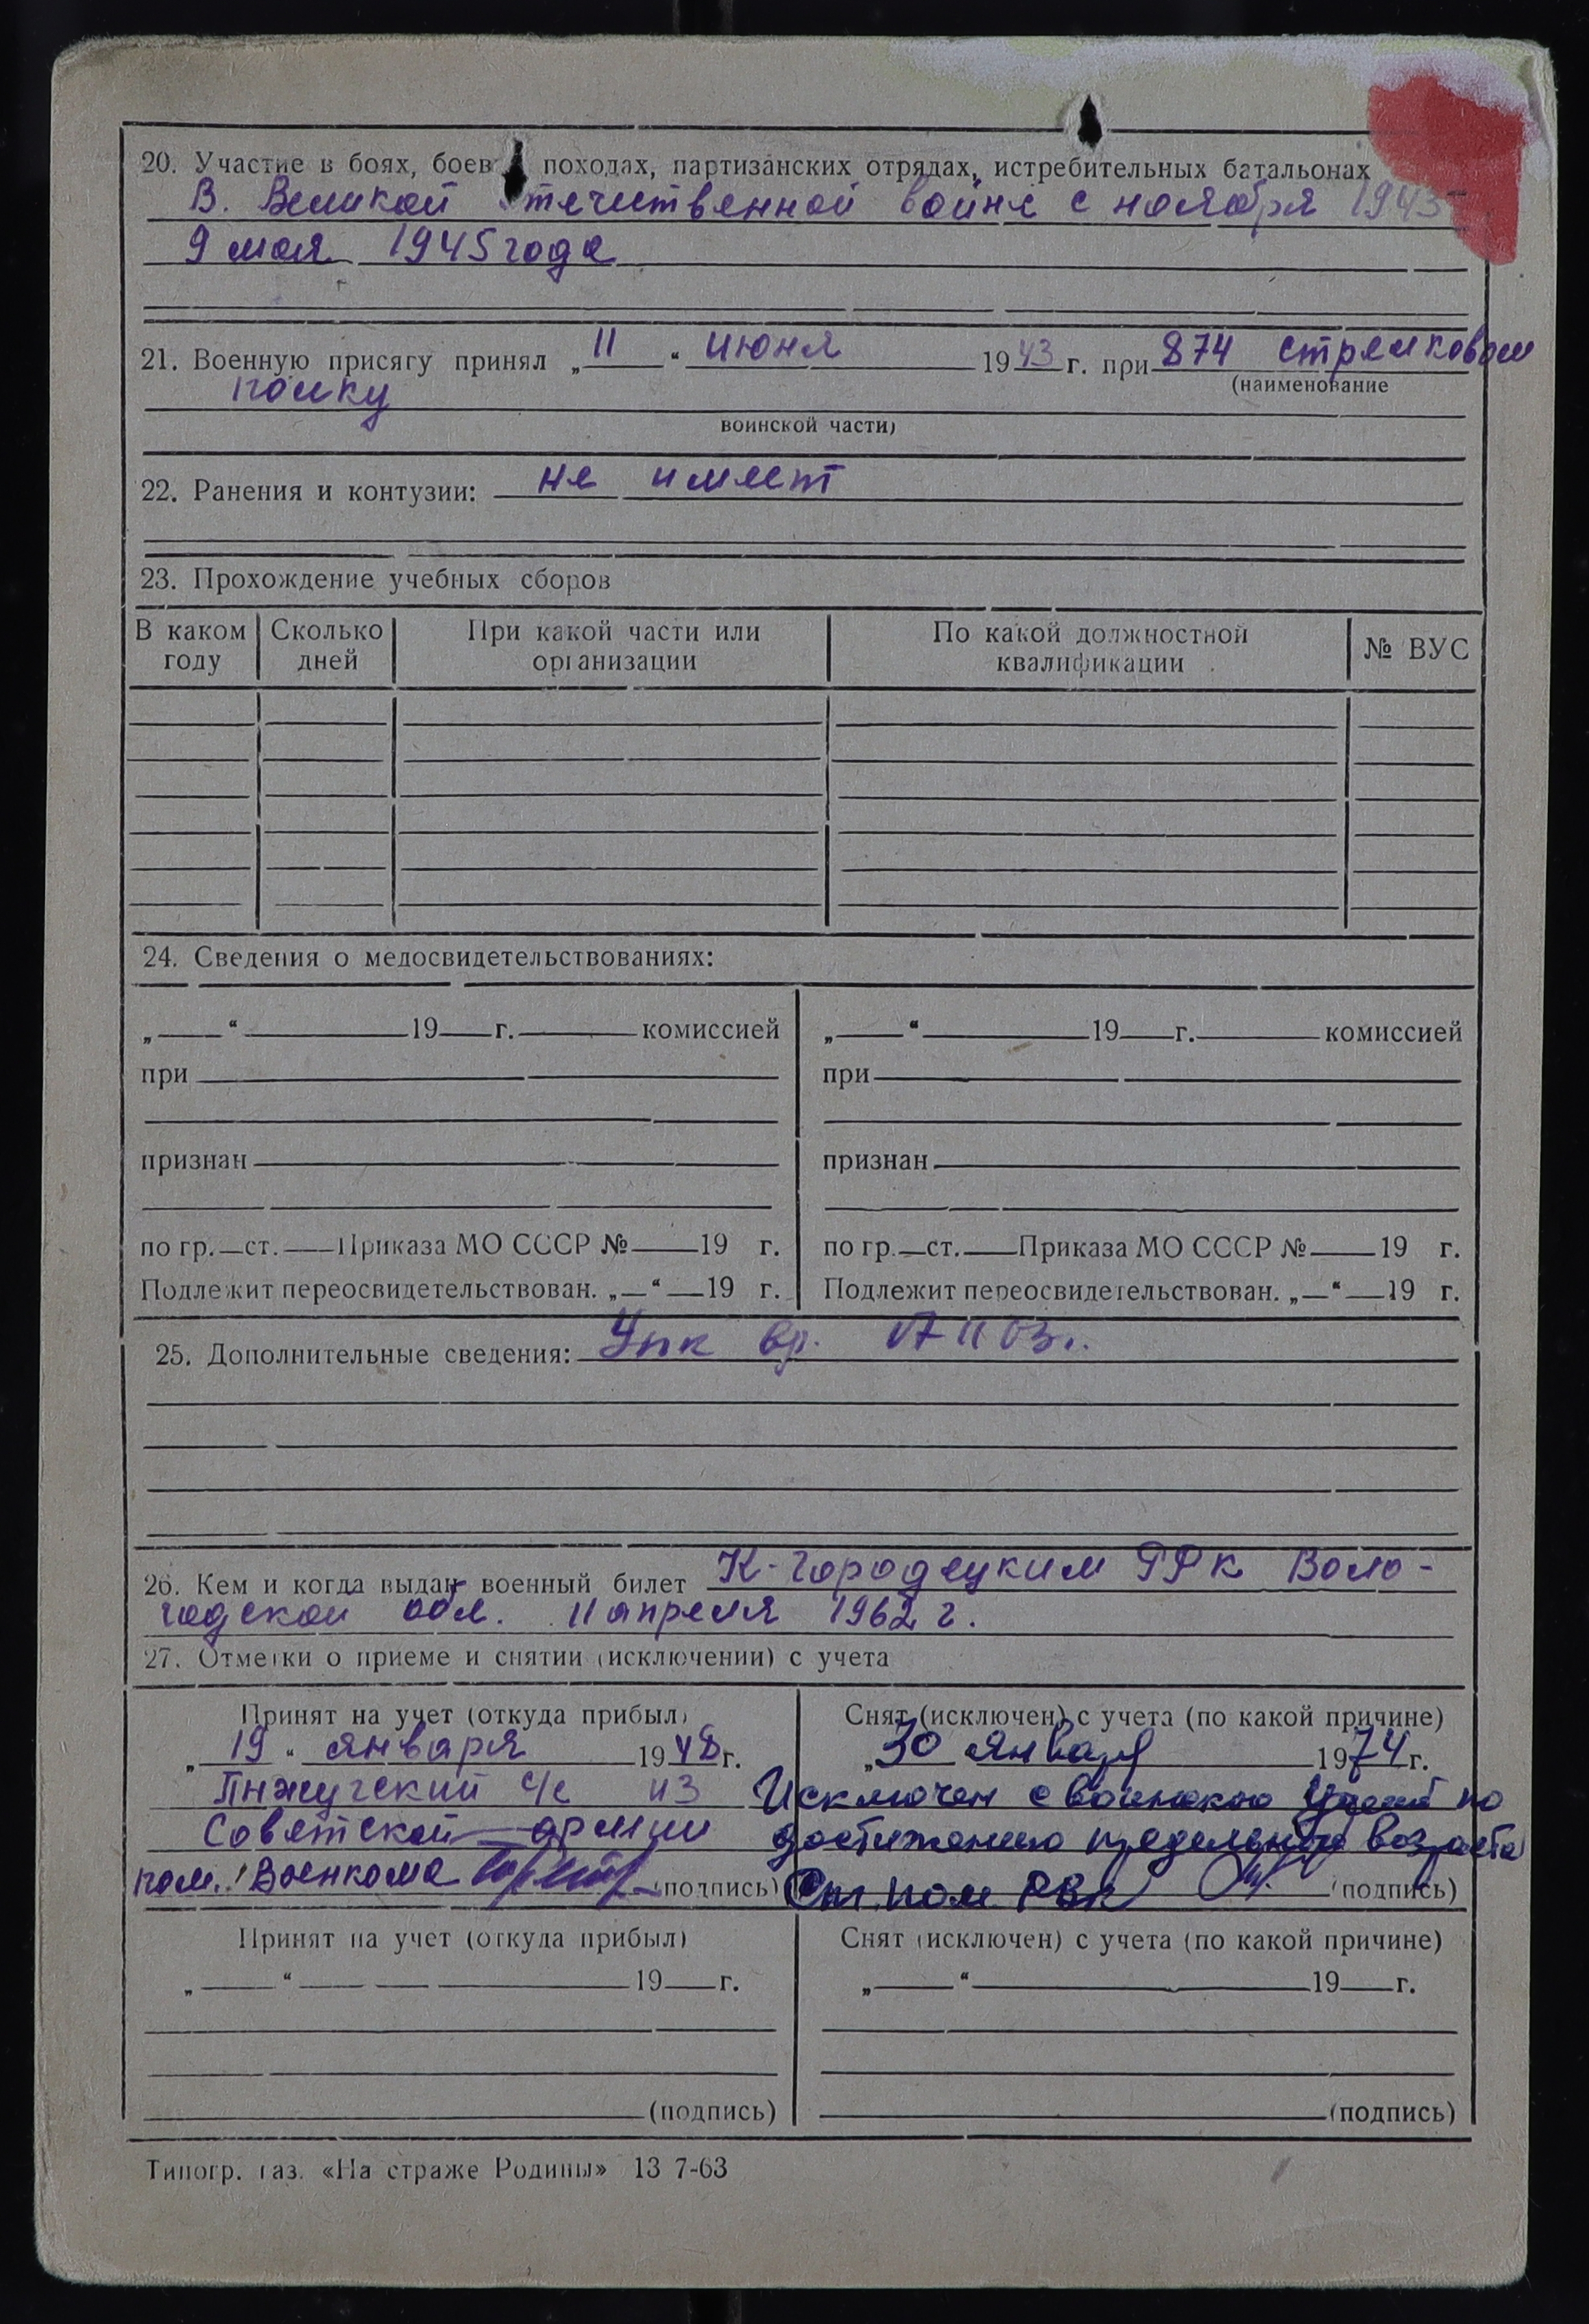 20. Участие в боях, боев походах, партизанских отрядах, истребительных батальонах
В. Великой отечественной войне с ноября 1943
9 мая 1945 года
21. Военную присягу принял „11“ июня 1943 г. при 874 стрелковом
(наименование
полку
воинской части)
22. Ранения и контузии: не имеет
23. Прохождение учебных сборов
В каком году Сколько дней При какой части или организации По какой должностной квалификации № ВУС
24. Сведения о медосвидетельствованиях:
„ “ 19 г. комиссией „ “ 19 г. комиссией
при при
признан признан
по гр. ст. Приказа МО СССР № 19 г. по гр. ст. Приказа МО СССР № 19 г.
Подлежит переосвидетельствован. „ “ 19 г. Подлежит переосвидетельствован. „ “ 19 г.
25. Дополнительные сведения:
26. Кем и когда выдан военный билет К-Городецким РВК Воло-
годской обл. 11 апреля 1962 г.
27. Отметки о приеме и снятии (исключении) с учета
Принят на учет (откуда прибыл) Снят (исключен) с учета (по какой причине)
„19“ января 1948 г. „30 января 1974 г.
с/с из Исключен с воинского учета по
Советской армии достижению предельного возраста
пом. Военкома (подпись) Ст. пом. РВК (подпись)
Принят на учет (откуда прибыл) Снят (исключен) с учета (по какой причине)
„ “ 19 г. „ “ 19 г.
(подпись) (подпись)
Типогр. газ. «На страже Родины» 13 7-63